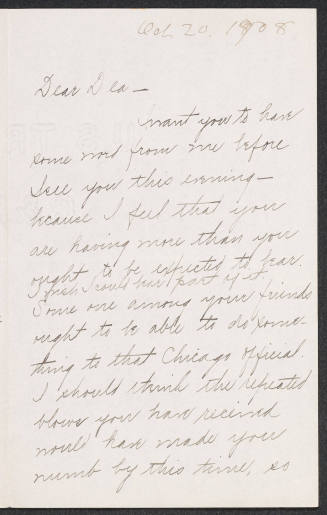 Oct. 20, 1908
Dear Lea —
I want you to have
some word from me before
I see you this evening —
because I feel that you
are having more than you
ought to be expected to bear.
I wish I could bear part of it.
Some one among your friends
ought to be able to do some-
thing to that Chicago official.
I should think the repeated
blows you have received
would have made you
numb by this time, so